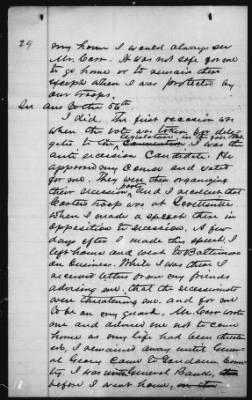 29
my home I would always see
Mr. Carr. It was not safe for me
to go home or to remain there
except when I was protected by
our troops.
In Ans to the 56th
I did. The first occasion was
when the vote was taken for dele
gates to the Convention I was the
anti secession Candidate. He
approved my course and voted
for me. They were then organizing
their secession, and I
troop was at
when I made a speech there in
opposition to secession. A few
days after I made this speech, I
left home and went to Baltimore
on business. While I was there I
received letters from my friends
advising me, that the secessionists
were threatening me, and for me
to be on my guard. Mr. Carr wrote
me and advised me not to come
home as my life had been threat
ed, I remained away until Gener
al Geary came to Loudoun Coun
ty. I was with General Banks,
before I went home,